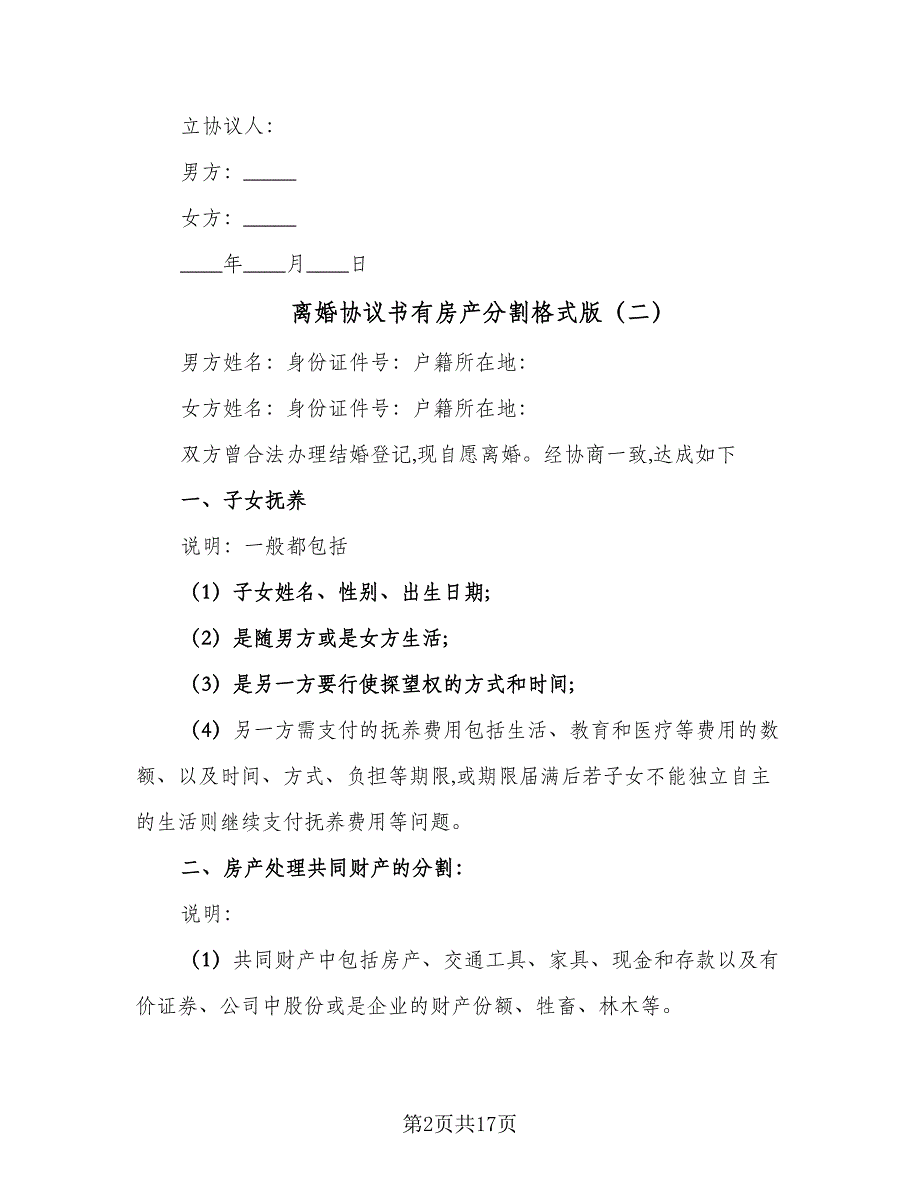 立协议人：
男方：_____
女方：_____
____年____月____日
离婚协议书有房产分割格式版（二）
男方姓名：身份证件号：户籍所在地：
女方姓名：身份证件号：户籍所在地：
双方曾合法办理结婚登记,现自愿离婚。经协商一致,达成如下
一、子女抚养
说明：一般都包括
（1）子女姓名、性别、出生日期;
（2）是随男方或是女方生活;
（3）是另一方要行使探望权的方式和时间;
（4）另一方需支付的抚养费用包括生活、教育和医疗等费用的数
额、以及时间、方式、负担等期限,或期限届满后若子女不能独立自主
的生活则继续支付抚养费用等问题。
二、房产处理共同财产的分割：
说明：
（1）共同财产中包括房产、交通工具、家具、现金和存款以及有
价证券、公司中股份或是企业的财产份额、牲畜、林木等。
第2页共17页